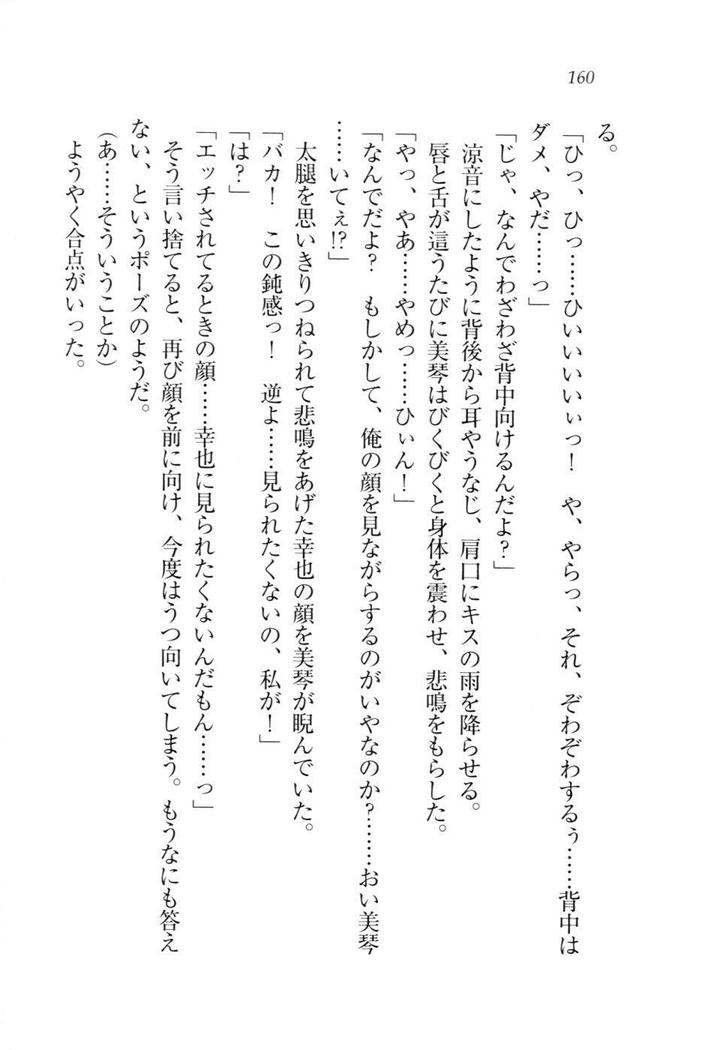 160
る。
「ひっ、ひっ……ひぃいいいぃっ！　や、やらっ、それ、ぞわぞわするぅ……背中は
ダメ、やだ……っ」
「じゃ、なんでわざわざ背中向けるんだよ？」
　涼音にしたように背後から耳やうなじ、肩口にキスの雨を降らせる。
　唇と舌が這うたびに美琴はびくびくと身体を震わせ、悲鳴をもらした。
「やっ、やあ……やめっ……ひぃん！」
「なんでだよ？　もしかして、俺の顔を見ながらするのがいやなのか？……おい美琴
……いてぇ!?」
　太腿を思いきりつねられて悲鳴をあげた幸也の顔を美琴が睨んでいた。
「バカ！　この鈍感っ！　逆よ……見られたくないの、私が！」
「は？」
「エッチされてるときの顔……幸也に見られたくないんだもん……っ」
　そう言い捨てると、再び顔を前に向け、今度はうつ向いてしまう。もうなにも答え
ない、というポーズのようだ。
（あ……そういうことか）
　ようやく合点がいった。